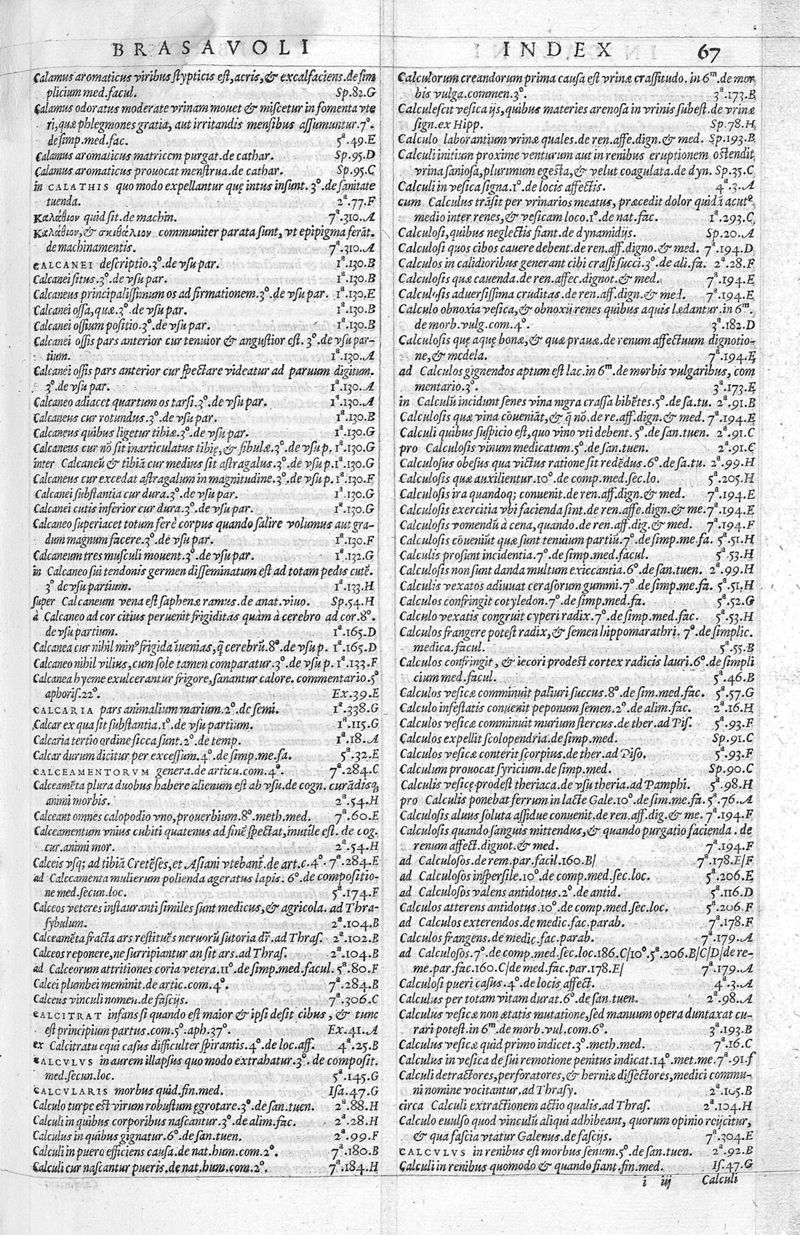 BRASAVOLI
Calamus aromaticus viribus stypticis est, acris, & excalfaciens. de sim
plicium med.facul. Sp.82.G
Calamus odoratus moderate vrinam mouet & miscetur in fomenta vte
ri, quæ phlegmones gratia, aut irritandis mensibus assumuntur. 7°.
de simp.med.fac. 5ª.49.E
Calamus aromaticus matricem purgat. de cathar. Sp.95.D
Calamus aromaticus prouocat menstrua. de cathar. Sp.95.C
in CALATHIS quo modo expellantur quę intus insunt. 3°. de sanitate
tuenda. 2ª.77.F
Καλάθιον quid sit. de machin. 7ª.310.A
Καλάθιον, & σκιθάλιον communiter parata sunt, vt epipigma ferāt.
de machinamentis. 7ª.310.A
CALCANEI descriptio. 3°. de vsu par. 1ª.130.B
Calcanei situs. 3°. de vsu par. 1ª.130.B
Calcaneus principalissimum os ad firmationem. 3°. de vsu par. 1ª.130.E
Calcanei ossa, quæ. 3°. de vsu par. 1ª.130.B
Calcanei ossium positio. 3°. de vsu par. 1ª.130.B
Calcanei ossis pars anterior cur tenuior & angustior est. 3°. de vsu par-
tium. 1ª.130.A
Calcanei ossis pars anterior cur spectare videatur ad paruum digitum.
3°. de vsu par. 1ª.130.A
Calcaneo adiacet quartum os tarsi. 3°. de vsu par. 1ª.130.A
Calcaneus cur rotundus. 3°. de vsu par. 1ª.130.B
Calcaneus quibus ligetur tibiæ. 3°. de vsu par. 1ª.130.G
Calcaneus cur nō sit inarticulatus tibię, & fibulæ. 3°. de vsu p. 1ª.130.G
inter Calcaneū & tibiā cur medius sit astragalus. 3°. de vsu p. 1ª.130.G
Calcaneus cur excedat astragalum in magnitudine. 3°. de vsu p. 1ª.130.F
Calcanei substantia cur dura. 3°. de vsu par. 1ª.130.G
Calcanei cutis inferior cur dura. 3°. de vsu par. 1ª.130.G
Calcaneo superiacet totum ferè corpus quando salire volumus aut gra-
dum magnum facere. 3°. de vsu par. 1ª.130.F
Calcaneum tres musculi mouent. 3°. de vsu par. 1ª.132.G
in Calcaneo sui tendonis germen disseminatum est ad totam pedis cutē.
3° de vsu partium. 1ª.133.H
super Calcaneum vena est saphenæ ramus. de anat. viuo. Sp.54.H
à Calcaneo ad cor citius peruenit frigiditas quàm à cerebro ad cor. 8°.
de vsu partium. 1ª.165.D
Calcanea cur nihil min⁹ frigida iuenias, q̄ cerebrū. 8°. de vsu p. 1ª.165.D
Calcaneo nihil vilius, cum sole tamen comparatur. 3°. de vsu p. 1ª.133.F
Calcanea hyeme exulcerantur frigore, sanantur calore. commentario. 5ª
aphoris. 22°. Ex.39.E
CALCARIA pars animalium marium. 2°. de semi. 1ª.338.G
Calcar ex qua sit substantia. 1°. de vsu partium. 1ª.115.G
Calcaria tertio ordine sicca sunt. 2°. de temp. 1ª.18.A
Calcar durum dicitur per excessum. 4°. de simp.me.fa. 5ª.32.E
CALCEAMENTORVM genera. de articu. com. 4°. 7ª.284.C
Calceamēta plura duobus habere alienum est ab vsu. de cogn. curādisq;
animi morbis. 2ª.54.H
Calceant omnes calopodio vno, prouerbium. 8°. meth.med. 7ª.60.E
Calceamentum vnius cubiti quatenus ad finē spectat, inutile est. de cog.
cur.animi mor. 2ª.54.H
Calceis vsq; ad tibiā Cretēses, et Asiani vtebant̄. de art. c. 4°. 7ª.284.E
ad Calceamenta mulierum polienda ageratus lapis. 6°. de compositio-
ne med.secun.loc. 5ª.174.F
Calceos veteres instauranti similes sunt medicus, & agricola. ad Thra-
sybulum. 2ª.104.B
Calceamēta fracta ars restituēs neruorū sutoria dr̄. ad Thras. 2ª.102.B
Calceos reponere, ne surripiantur an sit ars. ad Thras. 2ª.104.B
ad Calceorum attritiones coria vetera. 11°. de simp.med.facul. 5ª.80.F
Calcei plumbei meminit. de artic. com. 4°. 7ª.284.B
Calceus vinculi nomen. de fascijs. 7ª.306.C
CALCITRAT infans si quando est maior & ipsi desit cibus, & tunc
est principium partus. com. 5°. aph. 37°. Ex.41.A
ex Calcitratu equi casus difficulter spirantis. 4°. de loc.aff. 4ª.25.B
CALCVLVS in aurem illapsus quo modo extrahatur. 3°. de composit.
med.secun.loc. 5ª.145.G
CALCVLARIS morbus quid. fin.med. Isa.47.G
Calculo turpe est virum robustum egrotare. 3°. de san.tuen. 2ª.88.H
Calculi in quibus corporibus nascantur. 3°. de alim.fac. 2ª.28.H
Calculus in quibus gignatur. 6°. de san.tuen. 2ª.99.F
Calculi in puero efficiens causa. de nat.hum. com. 2°. 7ª.180.B
Calculi cur nascantur pueris. de nat.hum. com. 2°. 7ª.184.H
INDEX 67
Calculorum creandorum prima causa est vrinæ crassitudo. in 6ᵐ. de mor
bis vulga. commen. 3°. 3ª.173.B
Calculescit vesica ijs, quibus materies arenosa in vrinis subest. de vrinæ
sign. ex Hipp. Sp.78.H
Calculo laborantium vrinæ quales. de ren.affe.dign. & med. Sp.193.B
Calculi initium proxime venturum aut in renibus eruptionem ostendit
vrina saniosa, plurimum egesta, & velut coagulata. de dyn. Sp.35.C
Calculi in vesica signa. 1°. de locis affectis. 4ª.3.A
cum Calculus trāsit per vrinarios meatus, præcedit dolor quidā acutꝰ
medio inter renes, & vesicam loco. 1°. de nat.fac. 1ª.293.C
Calculosi, quibus neglectis fiant. de dynamidijs. Sp.20.A
Calculosi quos cibos cauere debent. de ren.affec.digno. & med. 7ª.194.D
Calculos in calidioribus generant cibi crassi succi. 3°. de ali.fa. 2ª.28.F
Calculosis quæ cauenda. de ren.affec.dignot. & med. 7ª.194.E
Calculosis aduersissima cruditas. de ren.aff.dign. & med. 7ª.194.E
Calculo obnoxia vesica, & obnoxij renes quibus aquis lædantur. in 6ᵐ.
de morb.vulg. com. 4°. 3ª.182.D
Calculosis quę aquę bonæ, & quæ prauæ. de renum affectuum dignotio-
ne, & medela. 7ª.194.E
ad Calculos gignendos aptum est lac. in 6ᵐ. de morbis vulgaribus, com
mentario. 3°. 3ª.173.E
in Calculū incidunt senes vina nigra crassa bibētes. 5°. de sa.tu. 2ª.91.B
Calculosis quæ vina cōueniāt, & q̄ nō. de re.aff.dign. & med. 7ª.194.E
Calculi quibus suspicio est, quo vino vti debent. 5°. de san.tuen. 2ª.91.C
pro Calculosis vinum medicatum. 5°. de san.tuen. 2ª.91.C
Calculosus obesus qua victus ratione sit redēdus. 6°. de sa.tu. 2ª.99.H
Calculosis quæ auxilientur. 10°. de comp.med.sec.lo. 5ª.205.H
Calculosis ira quandoq; conuenit. de ren.aff.dign. & med. 7ª.194.E
Calculosis exercitia vbi facienda sint. de ren.affe.dign. & me. 7ª.194.E
Calculosis vomendū à cena, quando. de ren.aff.dig. & med. 7ª.194.F
Calculosis cōueniūt quæ sunt tenuium partiū. 7°. de simp.me.fa. 5ª.51.H
Calculis prosunt incidentia. 7°. de simp.med.facul. 5ª.53.H
Calculosis non sunt danda multum exiccantia. 6°. de san.tuen. 2ª.99.H
Calculis vexatos adiuuat cerasorum gummi. 7°. de simp.me.fa. 5ª.51.H
Calculos confringit cotyledon. 7°. de simp.med.fa. 5ª.52.G
Calculo vexatis congruit cyperi radix. 7°. de simp.med.fac. 5ª.53.H
Calculos frangere potest radix, & semen hippomarathri. 7°. de simplic.
medica.facul. 5ª.55.B
Calculos confringit, & iecori prodest cortex radicis lauri. 6°. de simpli
cium med.facul. 5ª.46.B
Calculos vesicæ comminuit paliuri succus. 8°. de sim.med.fac. 5ª.57.G
Calculo infestatis conuenit peponum semen. 2°. de alim.fac. 2ª.16.H
Calculos vesicæ comminuit murium stercus. de ther. ad Pis. 5ª.93.F
Calculos expellit scolopendria. de simp.med. Sp.91.C
Calculos vesicæ conterit scorpius. de ther. ad Piso. 5ª.93.F
Calculum prouocat syricium. de simp.med. Sp.90.C
Calculis vesicę prodest theriaca. de vsu theria. ad Pamphi. 5ª.98.H
pro Calculis ponebat ferrum in lacte Gale. 10°. de sim.me.fa. 5ª.76.A
Calculosis, aluus soluta assidue conuenit. de ren.aff.dig. & me. 7ª.194.F
Calculosis quando sanguis mittendus, & quando purgatio facienda. de
renum affect.dignot. & med. 7ª.194.F
ad Calculosos. de rem.par.facil. 160.B/ 7ª.178.E/F
ad Calculosos inspersile. 10°. de comp.med.sec.loc. 5ª.206.E
ad Calculosos valens antidotus. 2°. de antid. 5ª.116.D
ad Calculos atterens antidotus. 10°. de comp.med.sec.loc. 5ª.206.F
ad Calculos exterendos. de medic.fac.parab. 7ª.178.F
Calculos frangens. de medic.fac.parab. 7ª.179.A
ad Calculosos. 7°. de comp.med.sec.loc. 186.C/10°. 5ª.206.B/C/D/de re-
me.par.fac. 160.C/de med.fac.par. 178.E/ 7ª.179.A
Calculosi pueri casus. 4°. de locis affect. 4ª.3.A
Calculus per totam vitam durat. 6°. de san.tuen. 2ª.98.A
Calculus vesicæ non ætatis mutatione, sed manuum opera duntaxat cu-
rari potest. in 6ᵐ. de morb.vul. com. 6°. 3ª.193.B
Calculus vesicæ quid primo indicet. 3°. meth.med. 7ª.16.C
Calculus in vesica de sui remotione penitus indicat. 14°. met.me. 7ª.91.f
Calculi detractores, perforatores, & herniæ dissectores, medici commu-
ni nomine vocitantur. ad Thrasy. 2ª.105.B
circa Calculi extractionem actio qualis. ad Thras. 2ª.104.H
Calculo euulso quod vinculū aliqui adhibeant, quorum opinio reijcitur,
& qua fascia vtatur Galenus. de fascijs. 7ª.304.E
CALCVLVS in renibus est morbus senum. 5°. de san.tuen. 2ª.92.B
Calculi in renibus quomodo & quando fiant. fin.med. Is.47.G
i iij Calculi